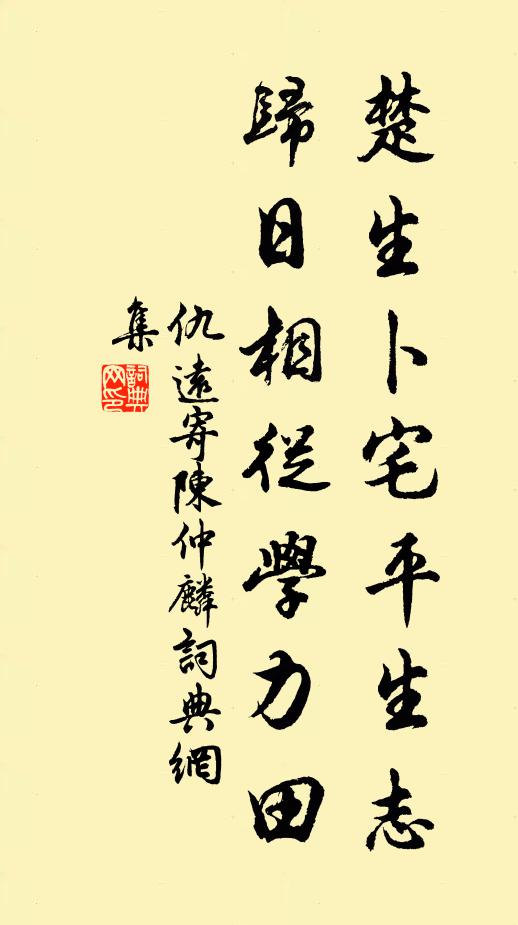 楚生卜宅平生志
歸日相從學力田
仇遠寄陳仲麟詞典網
集
詞典
网印